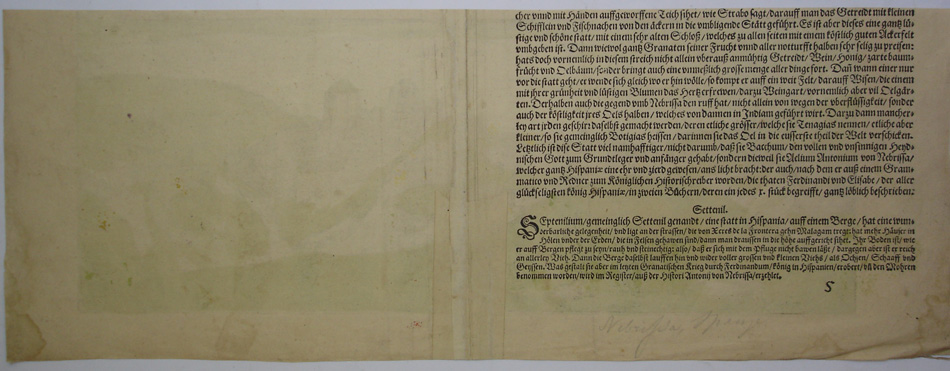 cher vnnd mit Händen auffgeworffene Teich sihet/ wie Strabo sagt/ darauff man das Getreidt mit kleinen
Schifflein vnd Fischnachen von den äckern in die vmbligende Stätt geführt. Es ist aber dieses eine gantz lü-
stige vnd schöne statt/ mit einem sehr alten Schloß/ welches zu allen seiten mit einem köstlich guten Ackerfelt
vmbgeben ist. Dann wiewol gantz Granaten seiner Frucht vnnd aller notturfft halben sehr selig zu preisen:
hats doch vornemlich in diesem streich nicht allein vberauß anmühtig Getreidt/ Wein/ Honig/ zarte baum-
frücht vnd Oelbäum/ sonder bringt auch eine vnmeßlich grosse menge aller dinge fort. Dañ wann einer nur
vor die statt geht/ er wende sich gleich wo er hin wölle/ so kompt er auff ein weit Felt/ darauff Wisen/ die einem
mit ihrer grünheit vnd lüstigen Blumen das Hertz erfrewen/ darzu Weingart/ vornemlich aber vil Oelgär-
ten. Derhalben auch die gegend vmb Nebrissa den ruff hat/ nicht allein von wegen der vberflüssigkeit/ sonder
auch der köstligkeit jres Oels halben/ welches von dannen in Indiam geführt wirt. Darzu dann mancher-
ley art jrden geschirr daselbst gemacht werden/ deren etliche grösser/ welche sie Tenagias nennen/ etliche aber
kleiner/ so sie gemeinlich Botigias heissen/ darinnen sie das Oel in die eusserste theil der Welt verschicken.
Letztlich ist dise Statt viel namhafftiger/ nicht darumb/ daß sie Bacchum/ den vollen vnd vnsinnigen Heyd-
nischen Gott zum Grundtleger vnd anfänger gehabt/ sondern dieweil sie Aelium Antonium von Nebrissa/
welcher gantz Hispaniæ ein ehr vnd zierd gewesen/ ans licht bracht: der auch/ nach dem er auß einem Gram-
matico vnd Redner zum Königlichen Historischreiber worden/ die thaten Ferdinandi vnd Elisabe/ der aller
glückseligsten könig Hispaniæ/ in zweien Büchern/ deren ein jedes x. stück begreifft/ gantz löblich beschrieben.
Settenil.
SEptenilium/ gemeinglich Settenil genandt/ eine statt in Hispania/ auff einem Berge/ hat eine wun-
derbarliche gelegenheit/ vnd ligt an der strassen/ die von Xeres de la Frontera gehn Malagam tregt: hat mehr Häuser in
Hölen vnder der Erden/ die in Felsen gehawen sind/ dann man draussen in die höhe auffgericht sihet. Ihr Boden ist/ wie
er auff Bergen pflegt zu seyn/ rauh vnd steinechtig: also/ daß er sich mit dem Pfluge nicht bawen läßt/ dargegen aber ist er reich
an allerley Vieh. Dann die Berge daselbst lauffen hin vnd wider voller grossen vnd kleinen Viehs/ als Ochsen/ Schaaff vnd
Geyssen. Was gestalt sie aber im letzten Granatischen Krieg durch Ferdinandum/ könig in Hispanien/ erobert/ vñ den Mohren
benommen worden/ wird im Register/ auß der Histori Antonij von Nebrissa/ erzehlet.
S
Nebrissa Spange